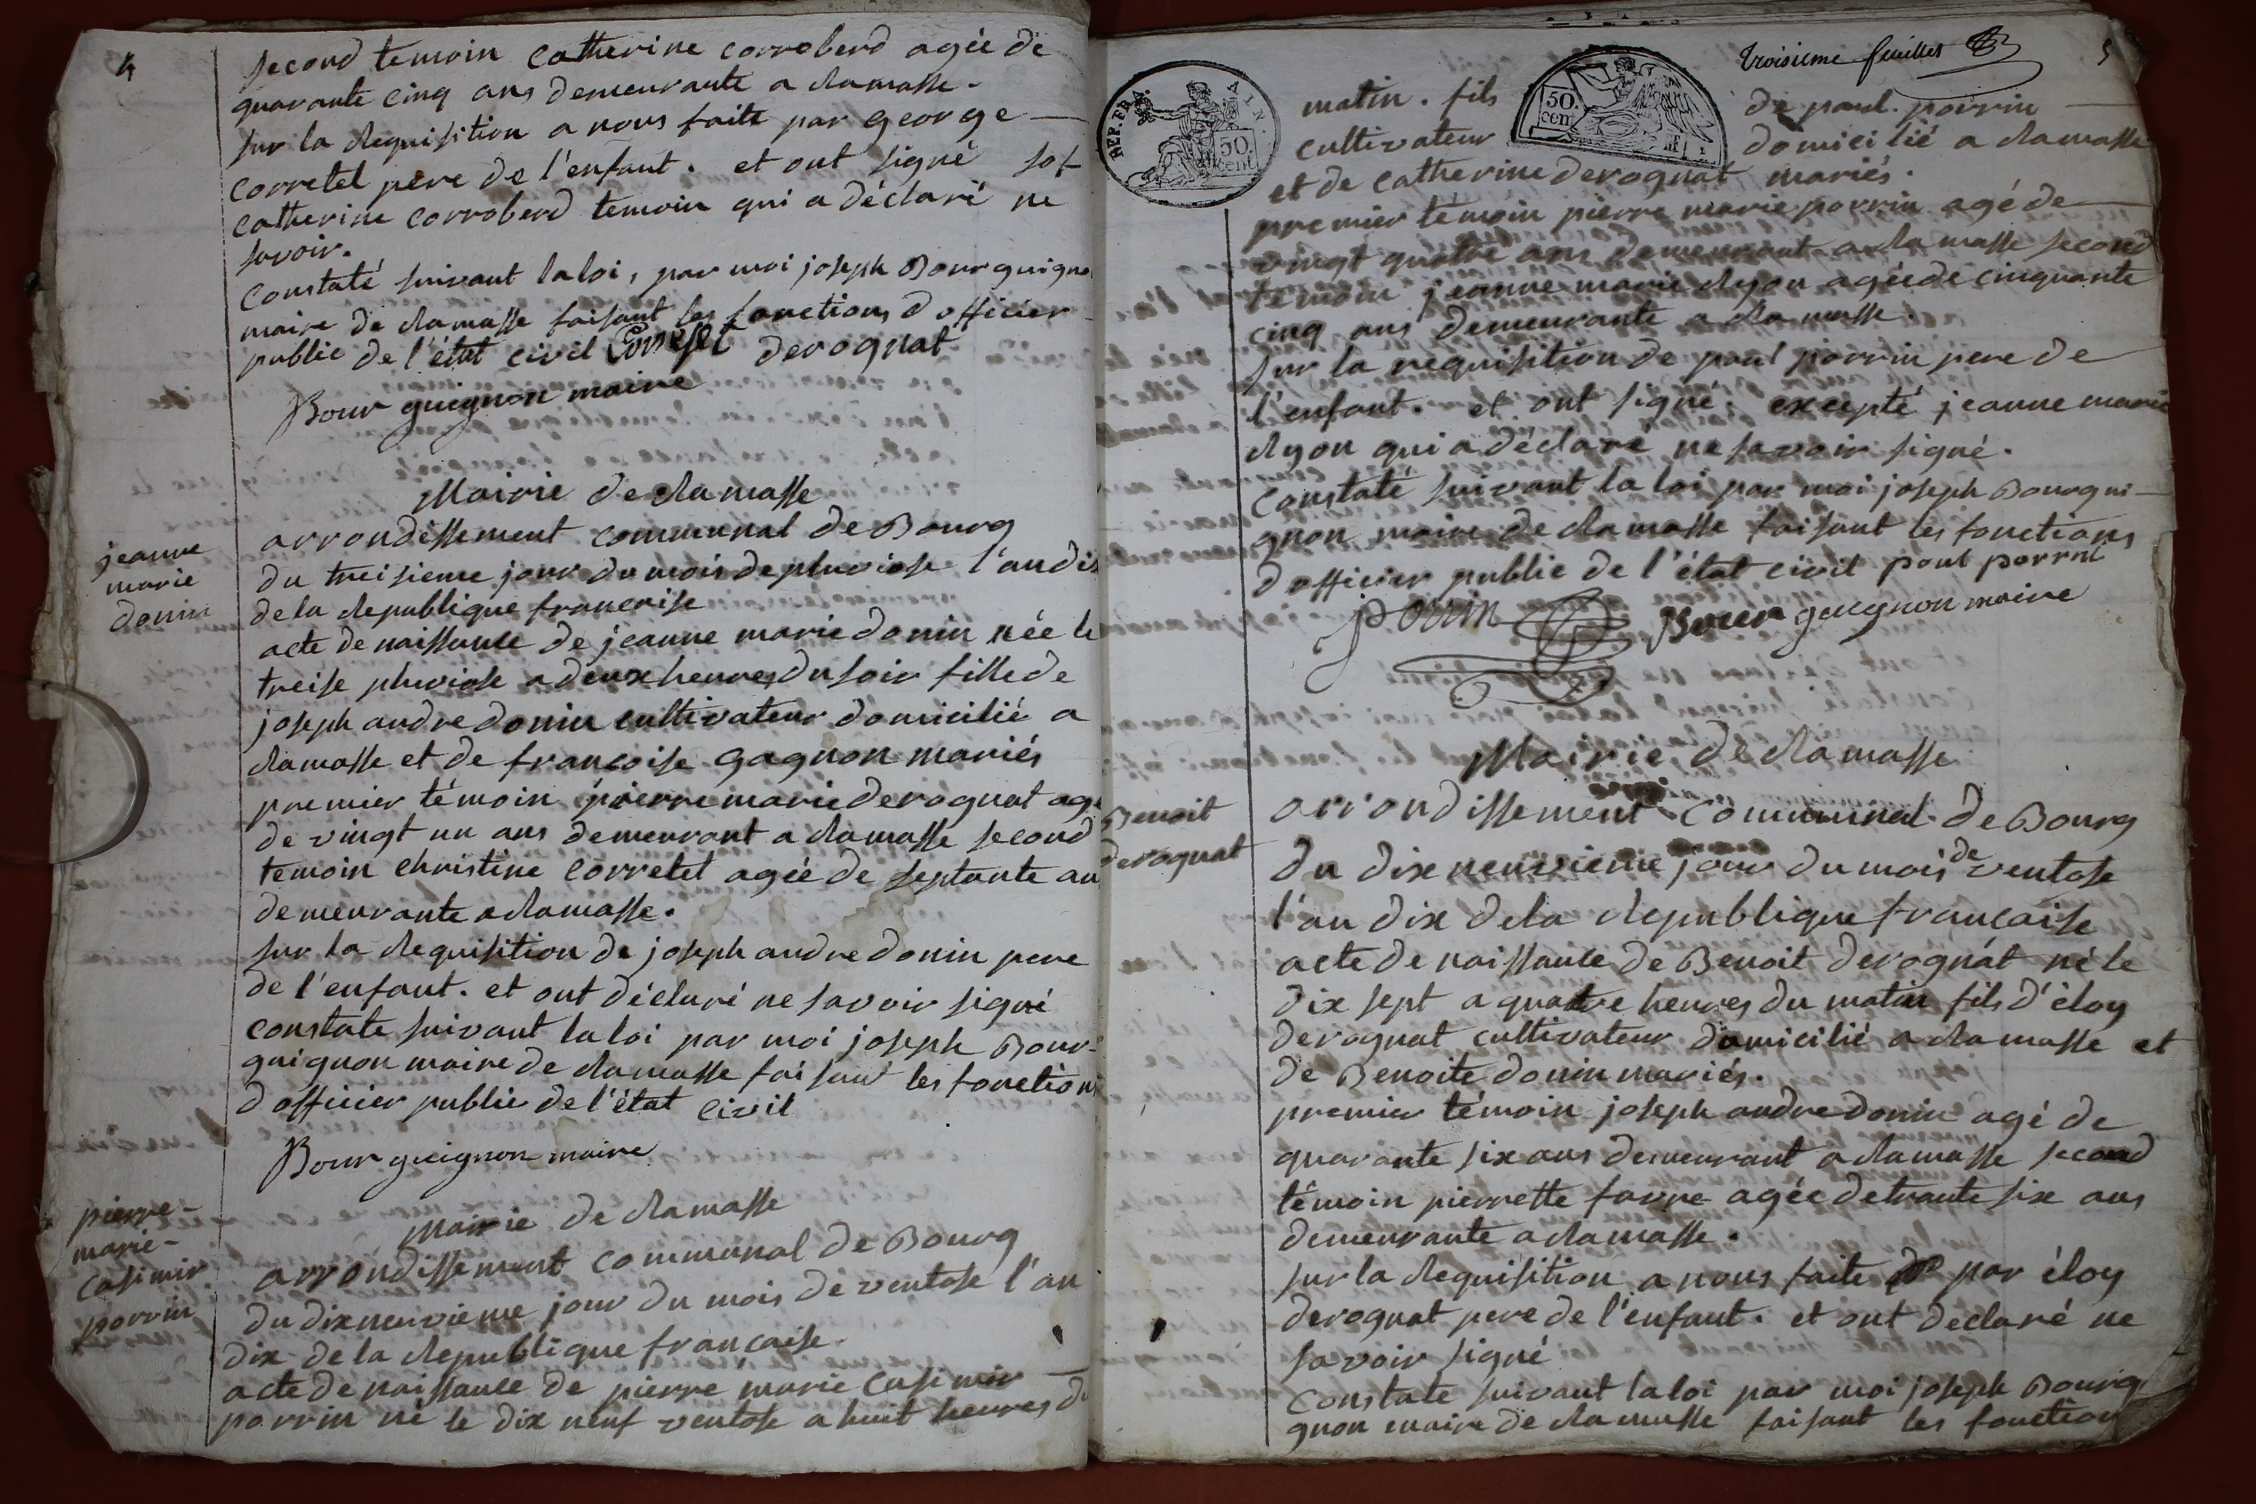 4
second temoin Catherine Corroberd agée de
quarante cinq ans demeurante a ramasse.
sur la requisition a nous faite par george
Corretel pere de l'enfant. et ont signé sof
Catherine Corroberd temoin qui a déclaré ne
savoir.
Constaté suivant la loi, par moi joseph Bourguigno
maire de ramasse faisant les fonctions d officier
public de l'état civil Corretel derognat
Bourguignon maire
Mairie de ramasse
arrondissement communal de Bourg
jeanne
marie
donin
du treisieme jour du mois de pluviose l'an dix
de la republique francoise
acte de naissance de jeanne marie donin née le
treise pluviose a deux heures du soir fille de
joseph andre donin cultivateur domicilié a
ramasse et de francoise gagnon mariés
premier témoin pierre marie derognat agé
de vingt un ans demeurant a ramasse second
temoin christine Corretel agée de septante an
demeurante a ramasse.
sur la requisition de joseph andre donin pere
de l'enfant. et ont déclaré ne savoir signé
constate suivant la loi par moi joseph Bour-
guignon maire de ramasse faisant les fonctions
d officier public de l'état civil
Bourguignon maire
pierre-
marie-
Casimir
porrin
Mairie de ramasse
arrondissement communal de Bourg
du dixneuvieme jour du mois de ventose l'an
dix de la republique francaise
acte de naissance de pierre marie Casimir
porrin né le dix neuf ventose a huit heures du
troisieme feuillet
5
REP. FRA. AIN.
50. cent
50. cent
matin. fils de paul. porrin
cultivateur domicilié a ramasse
et de Catherine derognat mariés.
premier témoin pierre marie porrin agé de
vingt quatre ans demeurant a ramasse second
temoin jeanne marie ryon agée de cinquante
cinq ans demeurante a ramasse.
sur la requisition de paul porrin pere de
l'enfant. et ont signé. excepté jeanne marie
ryon qui a déclare ne savoir signé.
Constaté suivant la loi par moi joseph Bourgui-
gnon maire de ramasse faisant les fonctions
d officier public de l'état civil paul porrin
porrin Bourguignon maire
Mairie de ramasse
Benoit
derognat
arrondissement Communal de Bourg
du dix neuvieme jour du mois de ventose
l'an dix de la republique francaise
acte de naissance de Benoit derognat né le
dix sept a quatre heures du matin fils d'éloy
derognat cultivateur domicilié a ramasse et
de Benoite donin mariés.
premier témoin joseph andre donin agé de
quarante six ans demeurant a ramasse second
témoin pierrette favre agée detrante six ans
demeurante a ramasse.
sur la requisition a nous faite par éloy
derognat pere de l'enfant. et ont déclaré ne
savoir signé
Constate suivant la loi par moi joseph Bourg
gnon maire de ramasse faisant les fonction